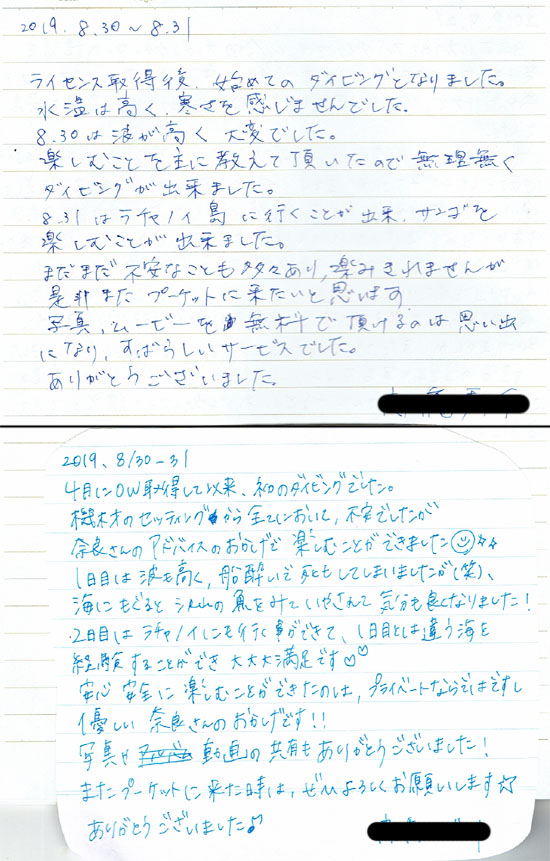 2019. 8.30 ~ 8.31
ライセンス取得後、始めてのダイビングとなりました。
水温は高く、寒さを感じませんでした。
8.30は波が高く 大変でした。
楽しむことを主に教えて頂いたので無理無く
ダイビングが出来ました。
8.31はラチャノイ島に行くことが出来、サンゴを
楽しむことが出来ました。
まだまだ不安なことも多々あり、楽みきれませんが
是非また プーケットに来たいと思います
写真、ムービーを無料で頂けるのは思い出
になり、すばらしいサービスでした。
ありがとうございました。
2019、8/30-31
4月にOW取得して以来、初のダイビングでした。
機材のセッティングから全てにおいて、不安でしたが
奈良さんのアドバイスのおかげで 楽しむことができました
1日目は波も高く、船酔いで もしてしまいましたが(笑)、
海にもぐると 魚をみていやされて 気分も良くなりました!
2日目はラチャノイにも行く事ができて、1日目とは違う海を
経験することができ 大大大満足です♡♡
安心 安全に 楽しむことができたのは、プライベートならではですし
優しい 奈良さんのおかげです!!
写真や 動画の共有もありがとうございました!
またプーケットに来た時は、ぜひよろしくお願いします☆
ありがとうございました♪